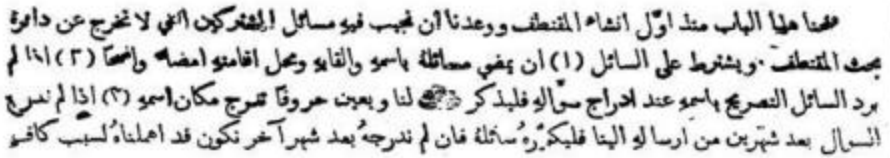 فتحنا هذا الباب منذ اوّل انشاء المقتطف ووعدنا ان نجيب فيهِ مسائل المشتركين التي لا تخرج عن دائرة
بحث المقتطف . ويشترط على السائل (١) ان يمضي مسائلهُ باسمهِ والقابهِ ومحل اقامتهِ امضاء واضحًا (٢) اذا لم
يرد السائل التصريح باسمهِ عند ادراج سوَّالهِ فليذكر ذلك لنا ويعين حروفًا تدرج مكان اسمهِ (٣) اذا لم ندرج
السوال بعد شهرين من ارسالهِ الينا فليكرّرهُ سائلهُ فان لم ندرجهُ بعد شهر آخر نكون قد اهملناهُ لسبب كافٍ